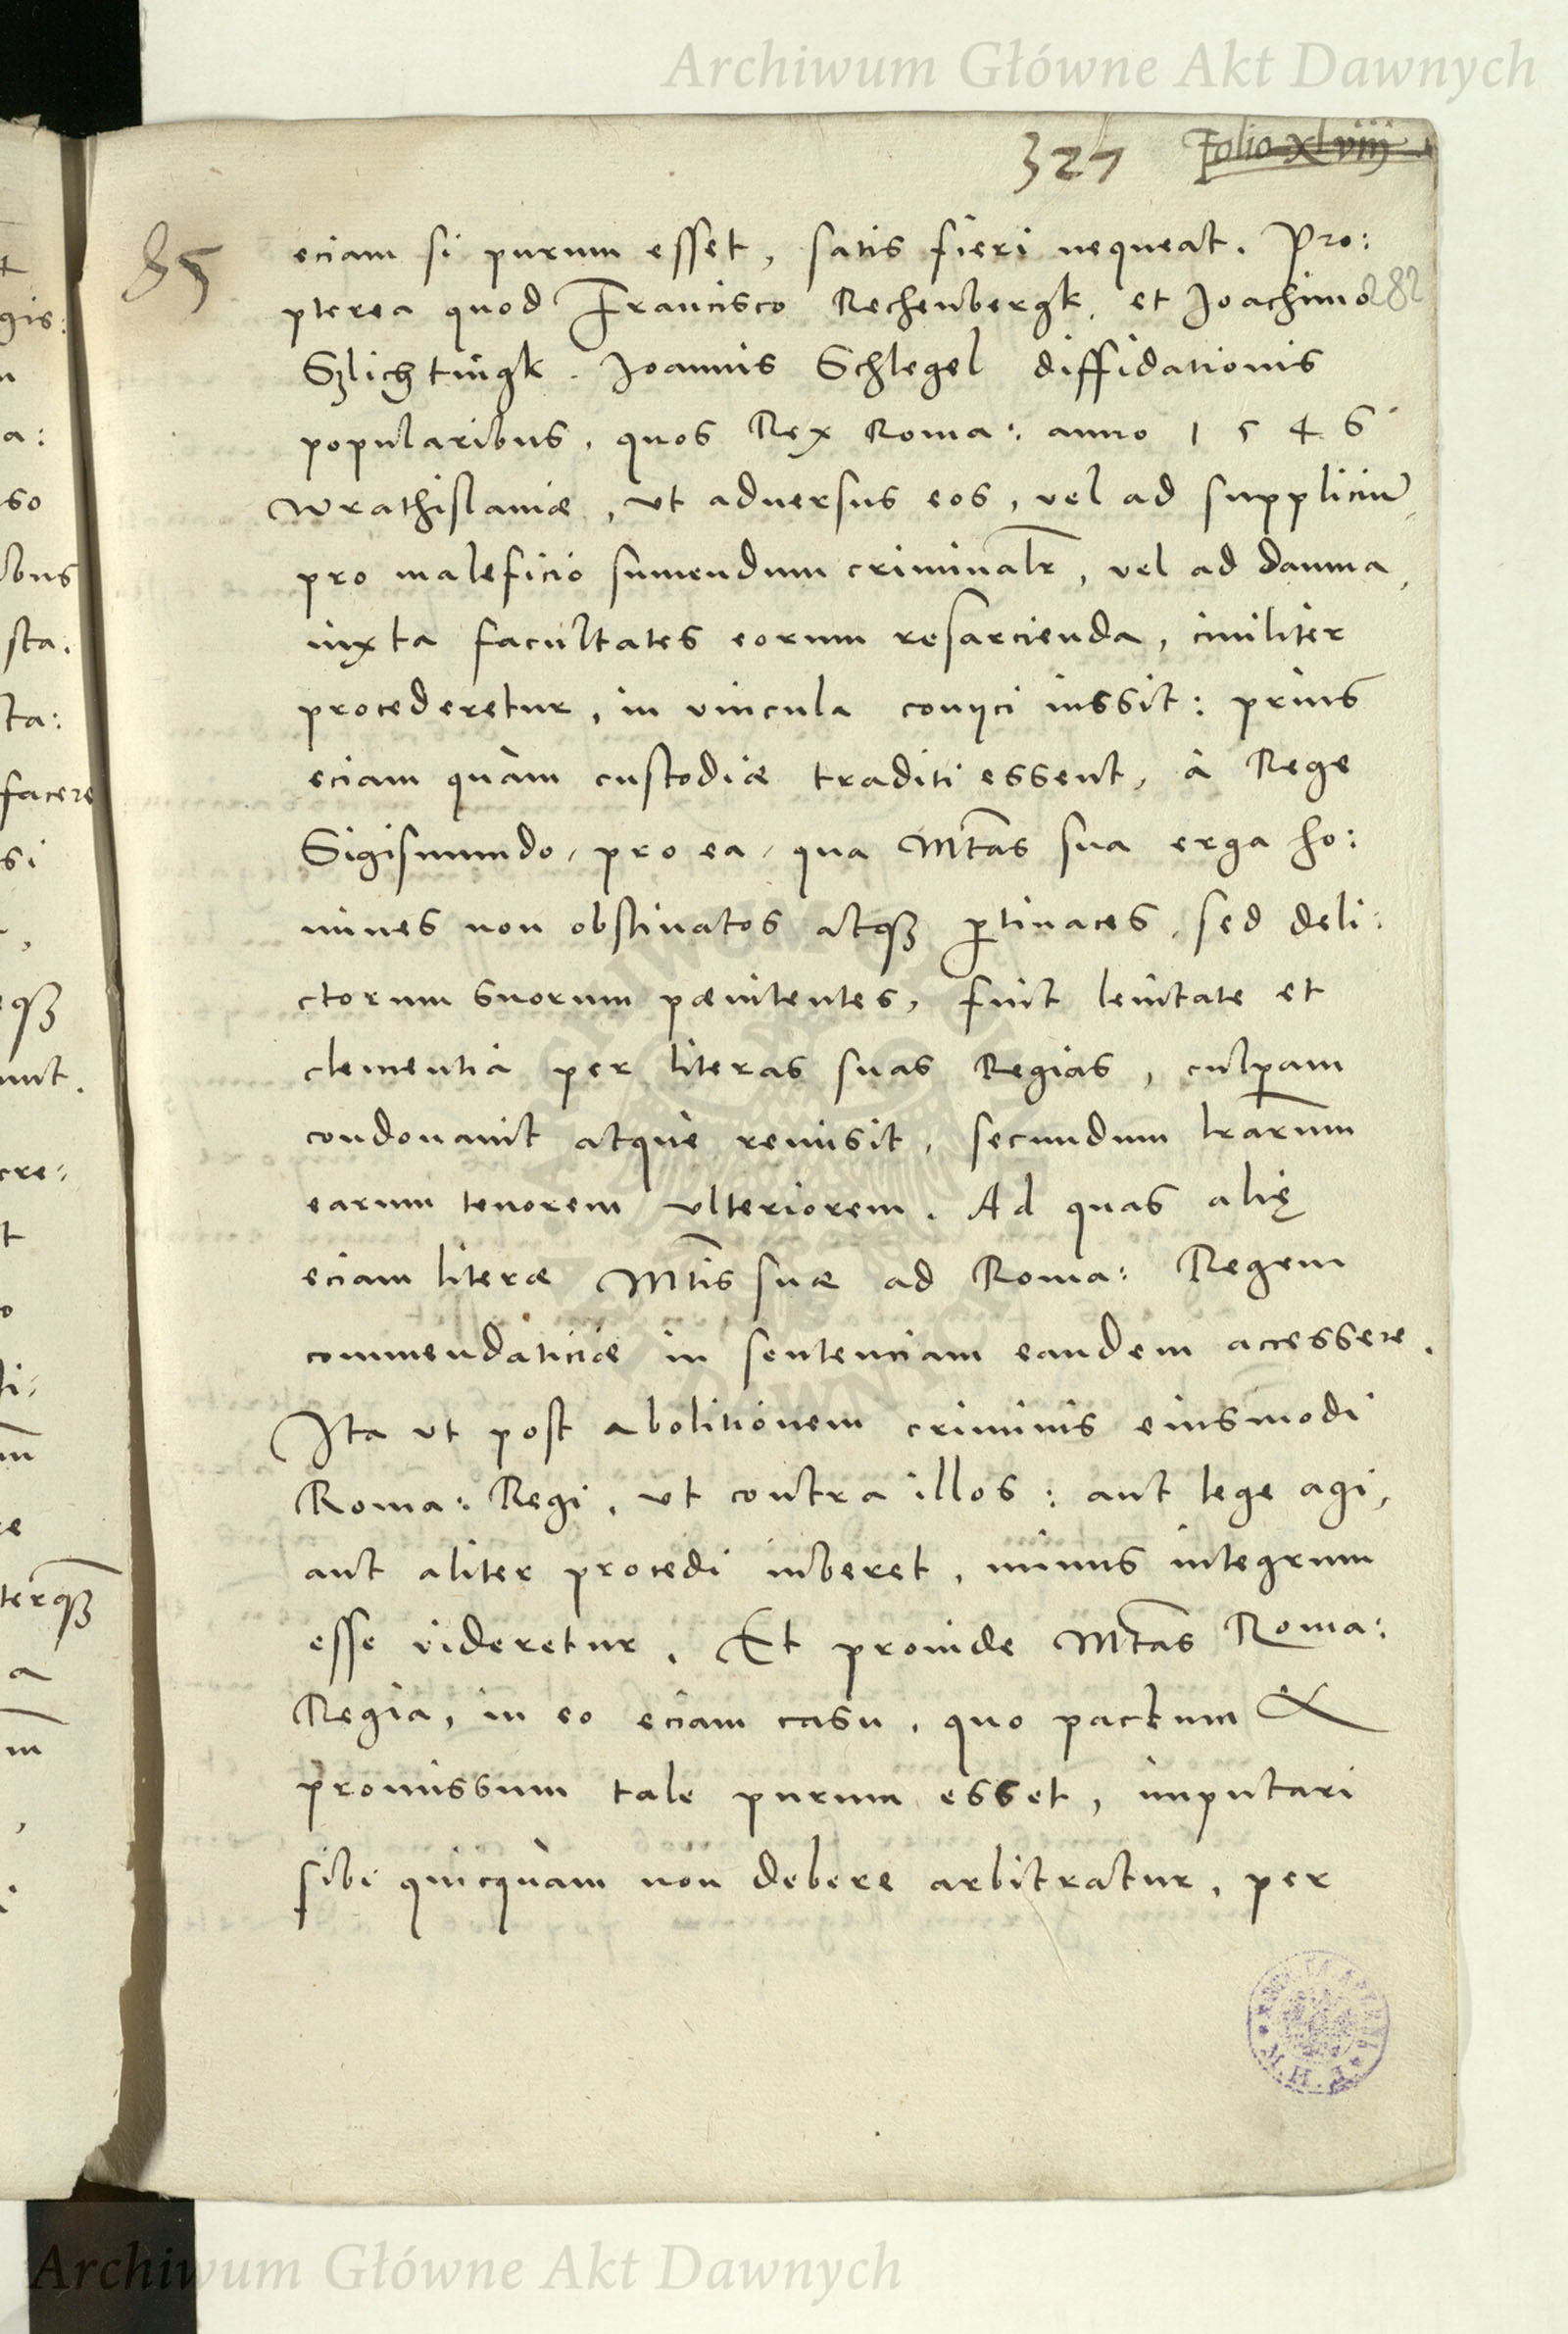 Archiwum Główne Akt Dawnych
327 Folio xlviij
85
eciam si purum esset, satis fieri nequeat. Pro:
pterea quod Francisco Rechenbergk, et Joachimo 282
Szlichtingk. Joannis Schlegel diffidationis
popularibus, quos Rex Roma: anno 1546
wrathislaviæ, ut adversus eos, vel ad suppliciũ,
pro maleficio sumendum criminalr̃, vel ad damna,
iuxta facultates eorum resarcienda, civiliter
procederetur, in vincula conijci iussit: prius
eciam quàm custodiæ traditi essent, à Rege
Sigismundo, pro ea, qua Mtãs sua erga ho:
mines non obstinatos atqꝫ ꝑtinaces, sed deli:
ctorum suorum pænitentes, fuit lenitate et
clementia per literas suas Regias, culpam
condonavit atque remisit, secundum lrãrum
earum tenorem ulteriorem. Ad quas alię
eciam literæ Mtĩs suæ ad Roma: Regem
commendaticiæ in sentenciam eandem accessere.
Ita ut post abolitionem criminis eiusmodi
Roma: Regi, ut contra illos: aut lege agi,
aut aliter procedi iuberet, minus integrum
esse videretur. Et proinde Mtãs Roma:
Regia, in eo eciam casu, quo pactum &
promissum tale purum esset, imputari
sibi quicquàm non debere arbitratur, per
Archiwum Główne Akt Dawnych